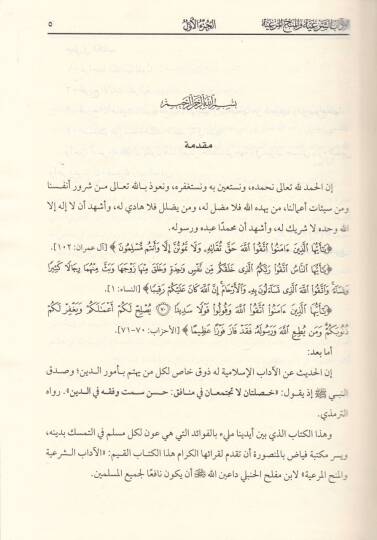 الآداب الشرعية والمنح المرعية الجزء الأول ٥
بسم الله الرحمن الرحيم
مقدمة
إن الحمد لله تعالى نحمده، ونستعين به ونستغفره، ونعوذ بالله تعالى من شرور أنفسنا
ومن سيئات أعمالنا، من يهده الله فلا مضل له، ومن يضلل فلا هادي له، وأشهد أن لا إله إلا
الله وحده لا شريك له، وأشهد أن محمدًا عبده ورسوله.
﴿يَٰٓأَيُّهَا ٱلَّذِينَ ءَامَنُوا۟ ٱتَّقُوا۟ ٱللَّهَ حَقَّ تُقَاتِهِۦ وَلَا تَمُوتُنَّ إِلَّا وَأَنتُم مُّسْلِمُونَ﴾ [آل عمران: ١٠٢].
﴿يَٰٓأَيُّهَا ٱلنَّاسُ ٱتَّقُوا۟ رَبَّكُمُ ٱلَّذِى خَلَقَكُم مِّن نَّفْسٍ وَٰحِدَةٍ وَخَلَقَ مِنْهَا زَوْجَهَا وَبَثَّ مِنْهُمَا رِجَالًا كَثِيرًا
وَنِسَآءً ۚ وَٱتَّقُوا۟ ٱللَّهَ ٱلَّذِى تَسَآءَلُونَ بِهِۦ وَٱلْأَرْحَامَ ۚ إِنَّ ٱللَّهَ كَانَ عَلَيْكُمْ رَقِيبًا﴾ [النساء: ١].
﴿يَٰٓأَيُّهَا ٱلَّذِينَ ءَامَنُوا۟ ٱتَّقُوا۟ ٱللَّهَ وَقُولُوا۟ قَوْلًا سَدِيدًا ۝٧٠ يُصْلِحْ لَكُمْ أَعْمَٰلَكُمْ وَيَغْفِرْ لَكُمْ
ذُنُوبَكُمْ ۗ وَمَن يُطِعِ ٱللَّهَ وَرَسُولَهُۥ فَقَدْ فَازَ فَوْزًا عَظِيمًا﴾ [الأحزاب: ٧٠-٧١].
أما بعد:
إن الحديث عن الآداب الإسلامية له ذوق خاص لكل من يهتم بأمور الدين؛ وصدق
النبي ﷺ إذ يقول: «خصلتان لا تجتمعان في منافق: حسن سمت وفقه في الدين». رواه
الترمذي.
وهذا الكتاب الذي بين أيدينا مليء بالفوائد التي هي عون لكل مسلم في التمسك بدينه،
ويسر مكتبة فياض بالمنصورة أن تقدم لقرائها الكرام هذا الكتاب القيم: «الآداب الشرعية
والمنح المرعية» لابن مفلح الحنبلي داعين الله ﷻ أن يكون نافعًا لجميع المسلمين.